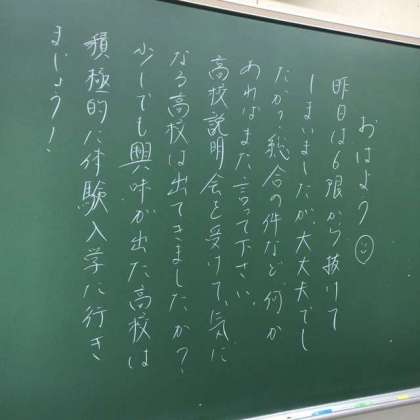 おはよう
昨日は6限から抜けて
しまいましたが大丈夫でし
たか?総合の件など何か
あればまた言って下さい。
高校説明会を受けて、気に
なる高校は出てきましたか?
少しでも興味が出た高校は
積極的に体験入学に行き
ましょう!